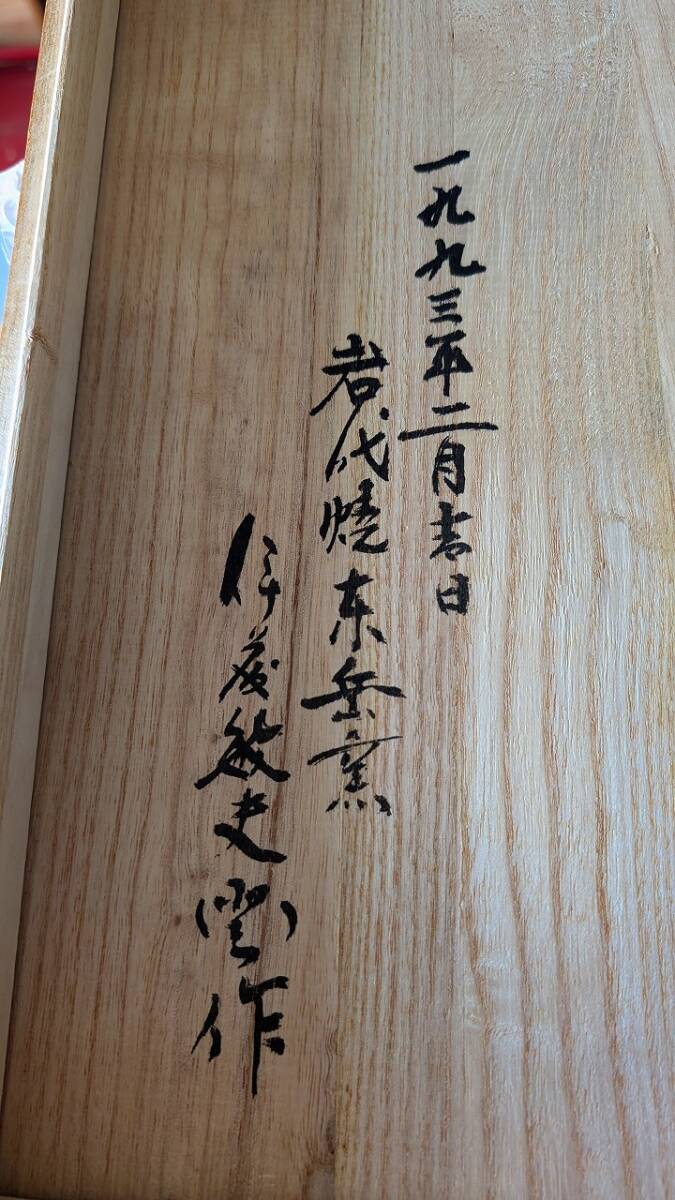 一九九三年二月吉日
岩代焼東岳窯
伊藤敏史作